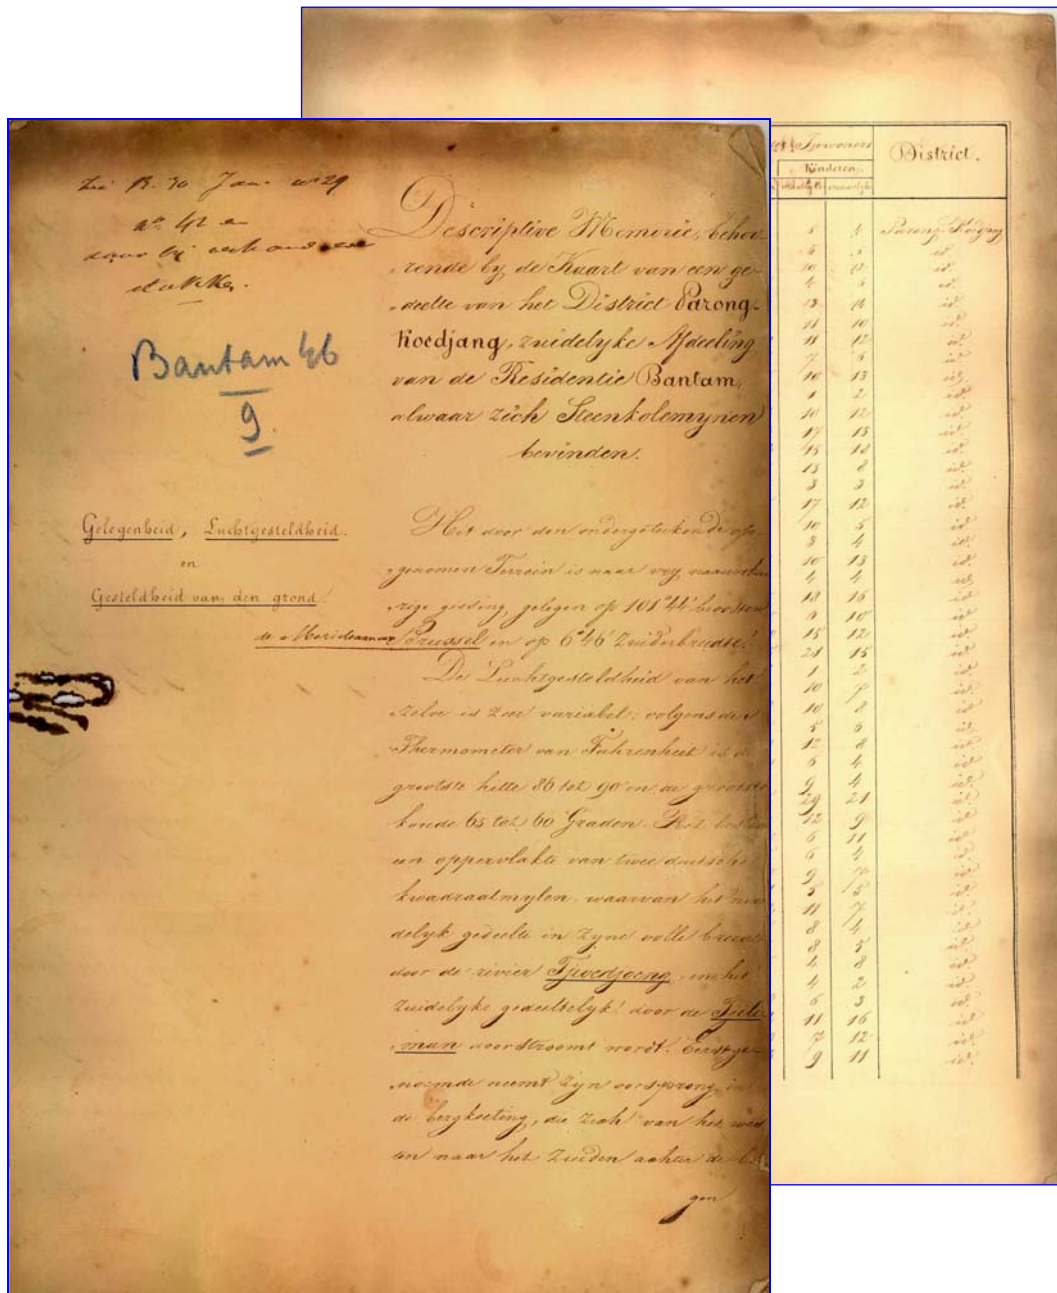 R. 30 Jan.
No 42 en
daar bij
stukken.
Bantam 46
9
Descriptive Memorie, behoo-
rende by de Kaart van een ge-
deelte van het District Parong-
Koedjang, zuidelyke Afdeeling
van de Residentie Bantam,
alwaar zich Steenkolemynen
bevinden.
Gelegenheid, Luchtgesteldheid
en
Gesteldheid van den grond.
Het door den ondergeteekende op-
genomen Terrein is naar
gissing, gelegen op 101°44'
Brussel en op 6°46' Zuiderbreedte.
De Luchtgesteldheid van het
zelve is zeer variabel; volgens den
Thermometer van Fahrenheit is de
grootste hitte 86 tot 90 en de grootste
koude 65 tot 60 Graden. Het
een oppervlakte van twee duitsche
kwadraatmylen, waarvan het
delyk gedeelte in zyne volle breedte
door de rivier Tjioedjoeng, en het
zuidelyke gedeeltelyk door de
man doorstroomt wordt. Eerstge-
noemde neemt zyn oorsprong in
de bergketting, die zich van het
ten naar het Zuiden achter de
gen
Inwoners
District.
Kinderen.
mannelyke vrouwelyke
8 4 Parong Koedjang
5 5 id.
10 id.
4 5 id.
13 14 id.
11 10 id.
11 12 id.
7 6 id.
10 13 id.
1 2 id.
10 12 id.
17 13 id.
15 18 id.
13 8 id.
3 3 id.
17 12 id.
10 5 id.
3 4 id.
10 13 id.
4 4 id.
18 16 id.
9 10 id.
15 12 id.
21 15 id.
1 2 id.
10 7 id.
10 8 id.
5 6 id.
12 8 id.
6 4 id.
9 4 id.
29 21 id.
12 9 id.
6 11 id.
6 4 id.
9 7 id.
5 5 id.
11 7 id.
8 4 id.
8 5 id.
4 8 id.
4 2 id.
6 3 id.
11 16 id.
7 12 id.
9 11 id.